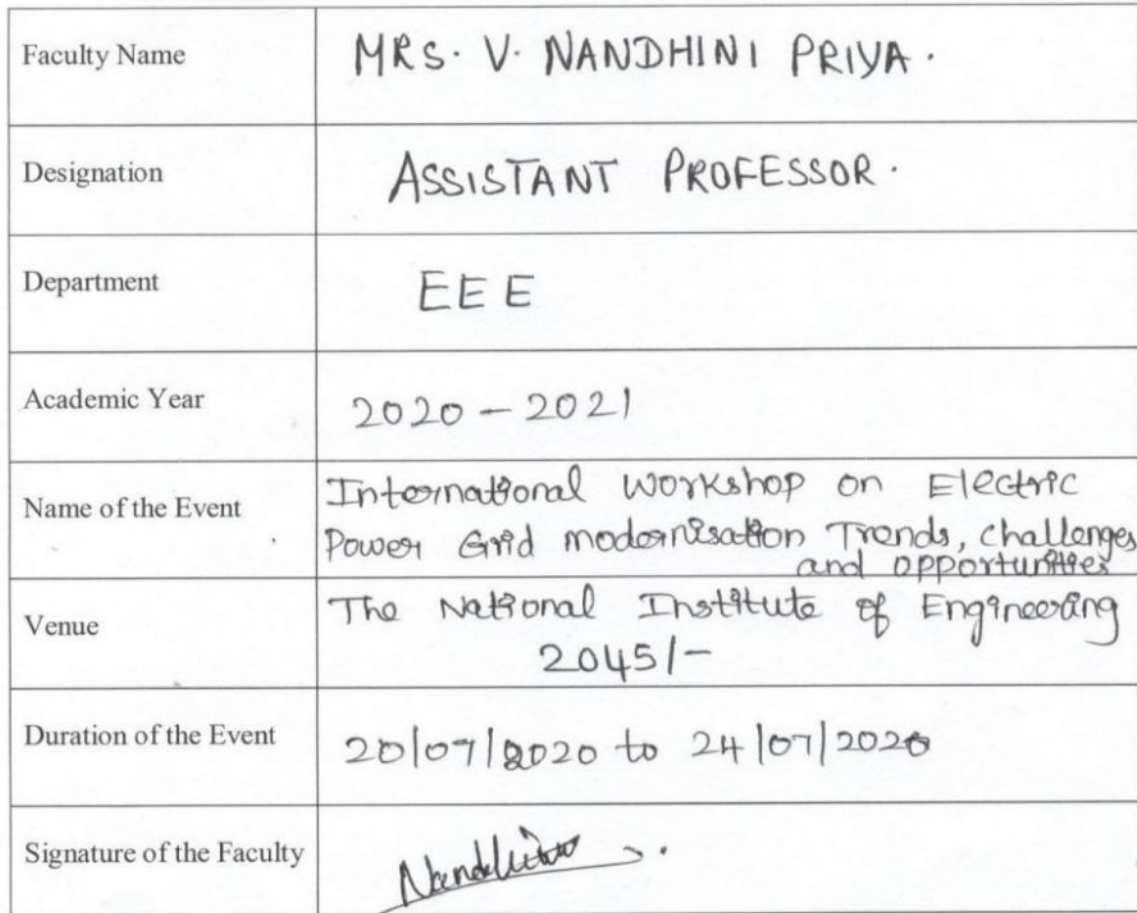 Faculty Name MRS. V. NANDHINI PRIYA.
Designation ASSISTANT PROFESSOR.
Department EEE
Academic Year 2020 - 2021
Name of the Event International Workshop on Electric
Power Grid modernisation Trends, challenges
and opportunities
Venue The National Institute of Engineering
2045/-
Duration of the Event 20/07/2020 to 24/07/2020
Signature of the Faculty